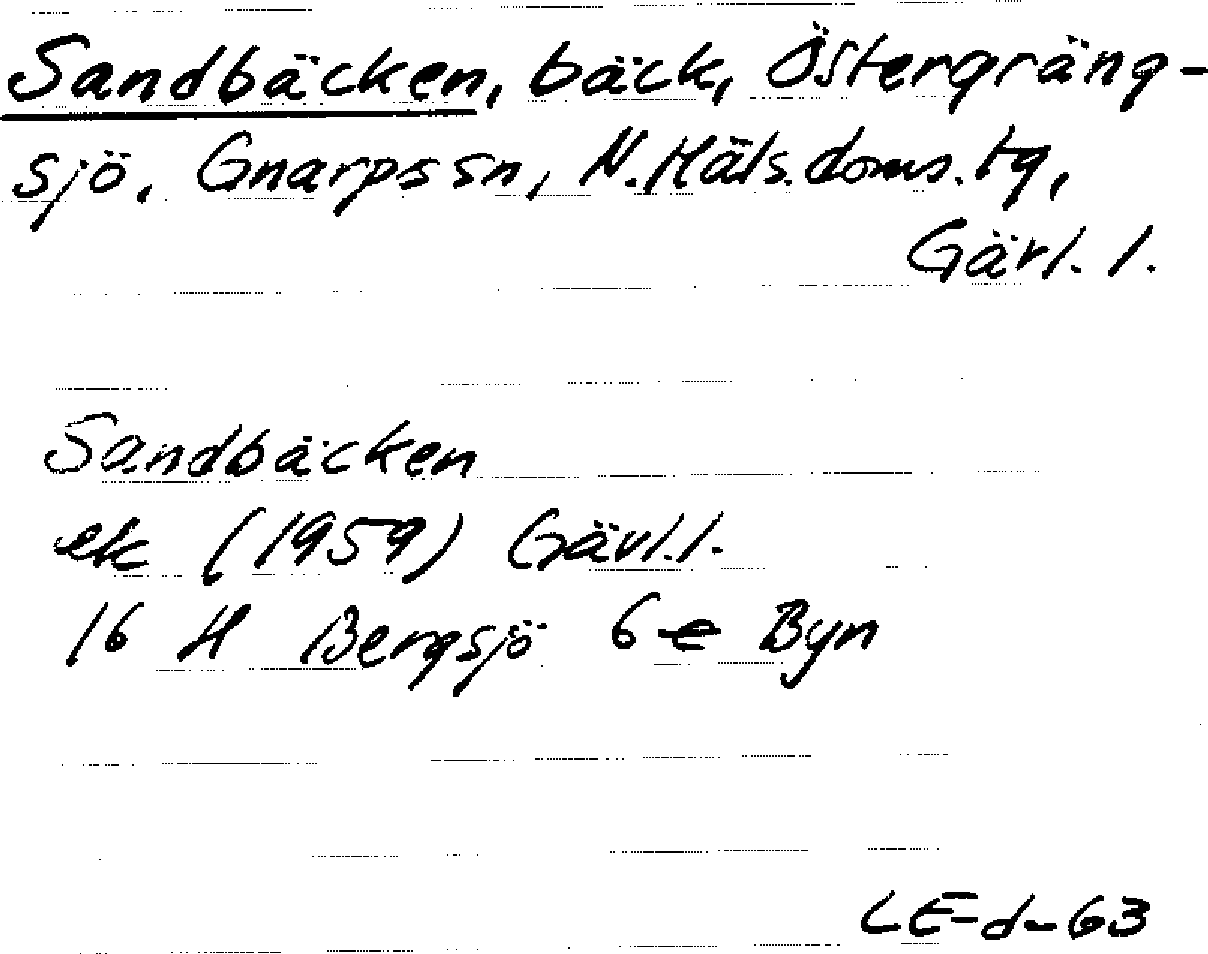 Sandbäcken, bäck, Östergräng-
sjö, Gnarps sn, N. Häls. doms. tg,
Gävl. l.
Sandbäcken
ek (1959) Gävl. l.
16 H Bergsjö 6 e Byn
LE-d-63